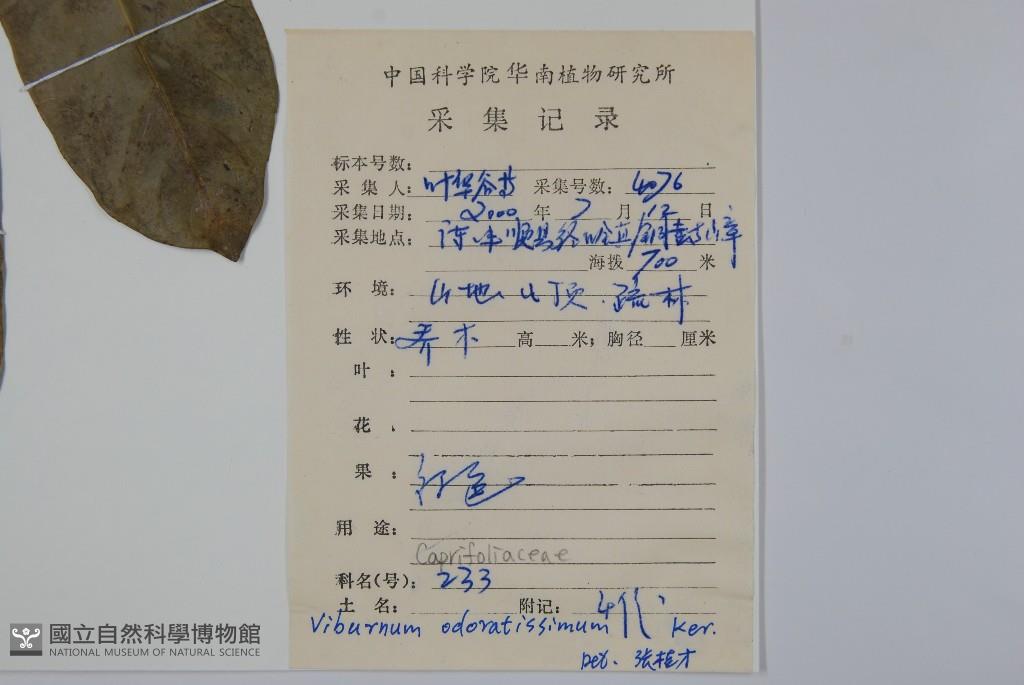 中国科学院华南植物研究所
采集记录
标本号数:
采集人: 叶华谷等 采集号数: 4076
采集日期: 2000 年 7 月 12 日
采集地点: 丰顺县
海拔 700 米
环境: 山地山顶.疏林
性状: 乔木 高 米; 胸径 厘米
叶:
花
果: 红色
用途:
Caprifoliaceae
科名(号): 233
土名: 附记: 4
Viburnum odoratissimum Ker.
Det. 张桂才
國立自然科學博物館
NATIONAL MUSEUM OF NATURAL SCIENCE